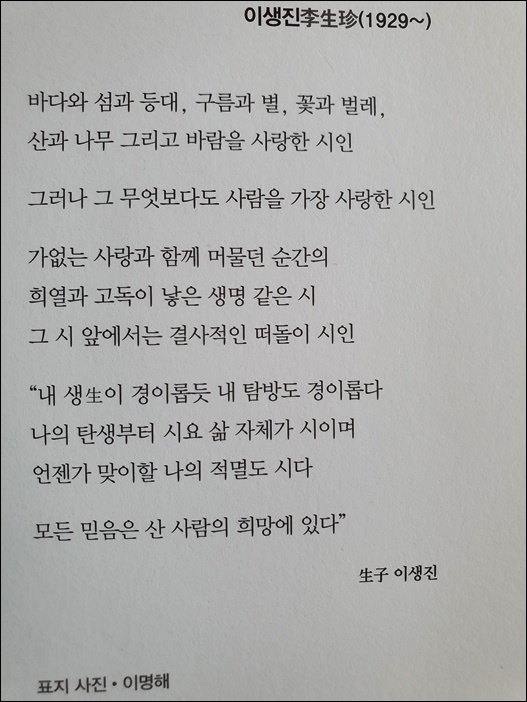 이생진李生珍(1929~)
바다와 섬과 등대, 구름과 별, 꽃과 벌레,
산과 나무 그리고 바람을 사랑한 시인
그러나 그 무엇보다도 사람을 가장 사랑한 시인
가없는 사랑과 함께 머물던 순간의
희열과 고독이 낳은 생명 같은 시
그 시 앞에서는 결사적인 떠돌이 시인
“내 생生이 경이롭듯 내 탐방도 경이롭다
나의 탄생부터 시요 삶 자체가 시이며
언젠가 맞이할 나의 적멸도 시다
모든 믿음은 산 사람의 희망에 있다”
生子 이생진
표지 사진 • 이명해